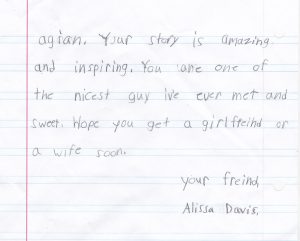 agian. Your story is amazing
and inspiring. You are one of
the nicest guy ive ever met and
sweet. Hope you get a girlfreind or
a wife soon.
your freind,
Alissa Davis.